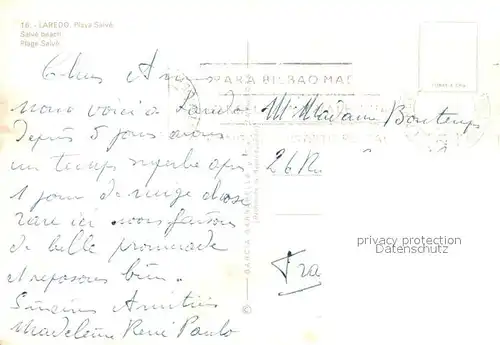 18. - LAREDO. Playa Salvé
Salvé beach
Plage Salvé
Chers Amis
PARA BILBAO MAD
nous voici à Laredo
Mr Madame Bontemps
Depuis 5 jours avons
un temps superbe après
26 Ru
1 jour de neige chose
rare ici. nous faisons
de belle promenade
et reposons bien.
Fra
Sincères Amitiés
Madeleine René Paulo
GARCIA GARRABELLA
privacy protection
Datenschutz